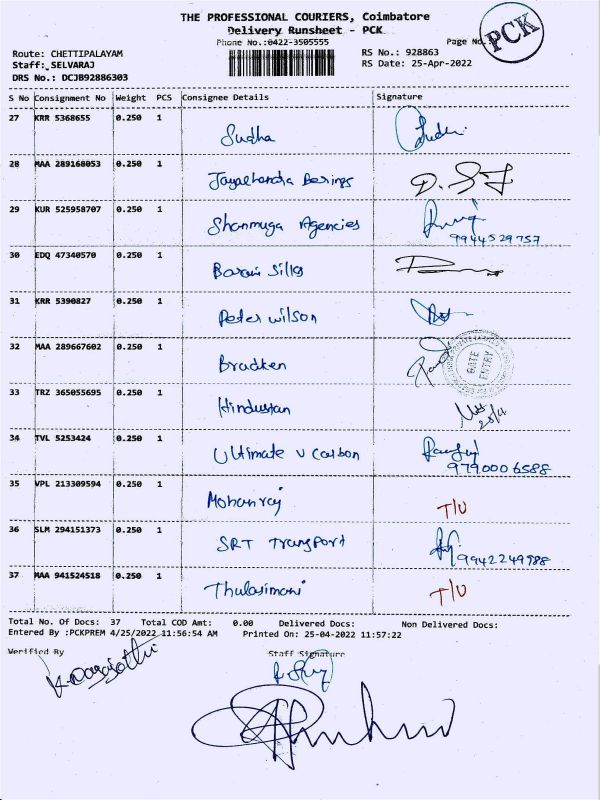 THE PROFESSIONAL COURIERS, Coimbatore
Delivery Runsheet - PCK
Phone No.:0422-3505555
Page No
PCK
Route: CHETTIPALAYAM
RS No.: 928863
Staff: SELVARAJ
RS Date: 25-Apr-2022
DRS No.: DCJB92886303
S No Consignment No Weight PCS Consignee Details Signature
27 KRR 5368655 0.250 1
Sudha
28 MAA 289168053 0.250 1
Jayachandra Berings
29 KUR 525958707 0.250 1
Shanmuga Agencies
9944529757
30 EDQ 47340570 0.250 1
Barani Silks
31 KRR 5390827 0.250 1
Peter wilson
32 MAA 289667602 0.250 1
Bradken
GATE ENTRY
33 TRZ 365055695 0.250 1
Hindustan
25/4
34 TVL 5253424 0.250 1
Ultimate v Carbon
9790006588
35 VPL 213309594 0.250 1
Mohanraj T/U
36 SLM 294151373 0.250 1
SRT Transport 9942249988
37 MAA 941524518 0.250 1
Thulasimani T/U
Total No. Of Docs: 37 Total COD Amt: 0.00 Delivered Docs: Non Delivered Docs:
Entered By :PCKPREM 4/25/2022 11:56:54 AM Printed On: 25-04-2022 11:57:22
Verified By Staff Signature